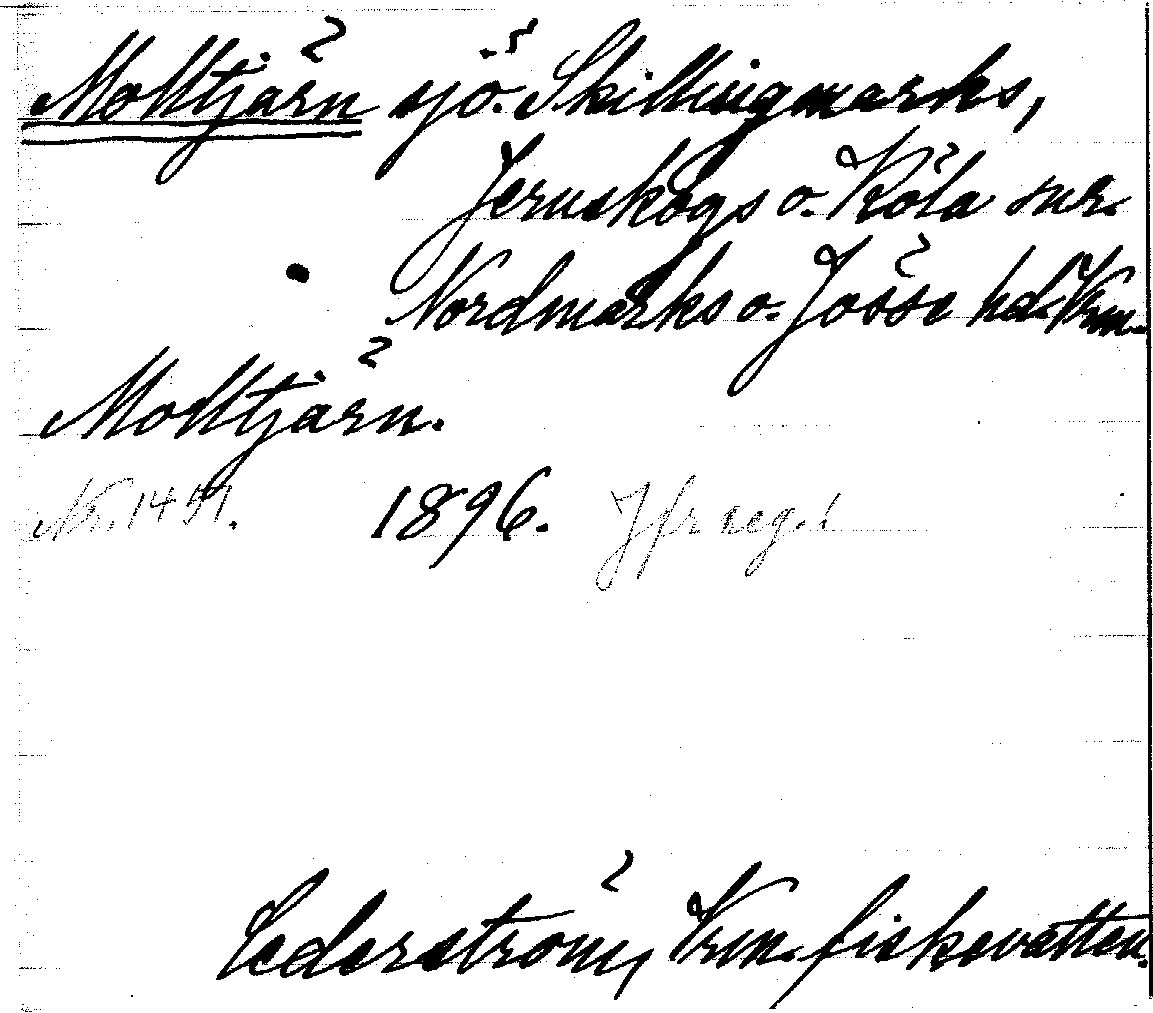 Molltjärn sjö. Skillingmarks,
Jernskogs o. Köla snr.
Nordmarks o. Jösse hd. Vrm.
Molltjärn.
Nr. 1451. 1896. Jfr reg.!
Cederström, Vrm. fiskevatten.